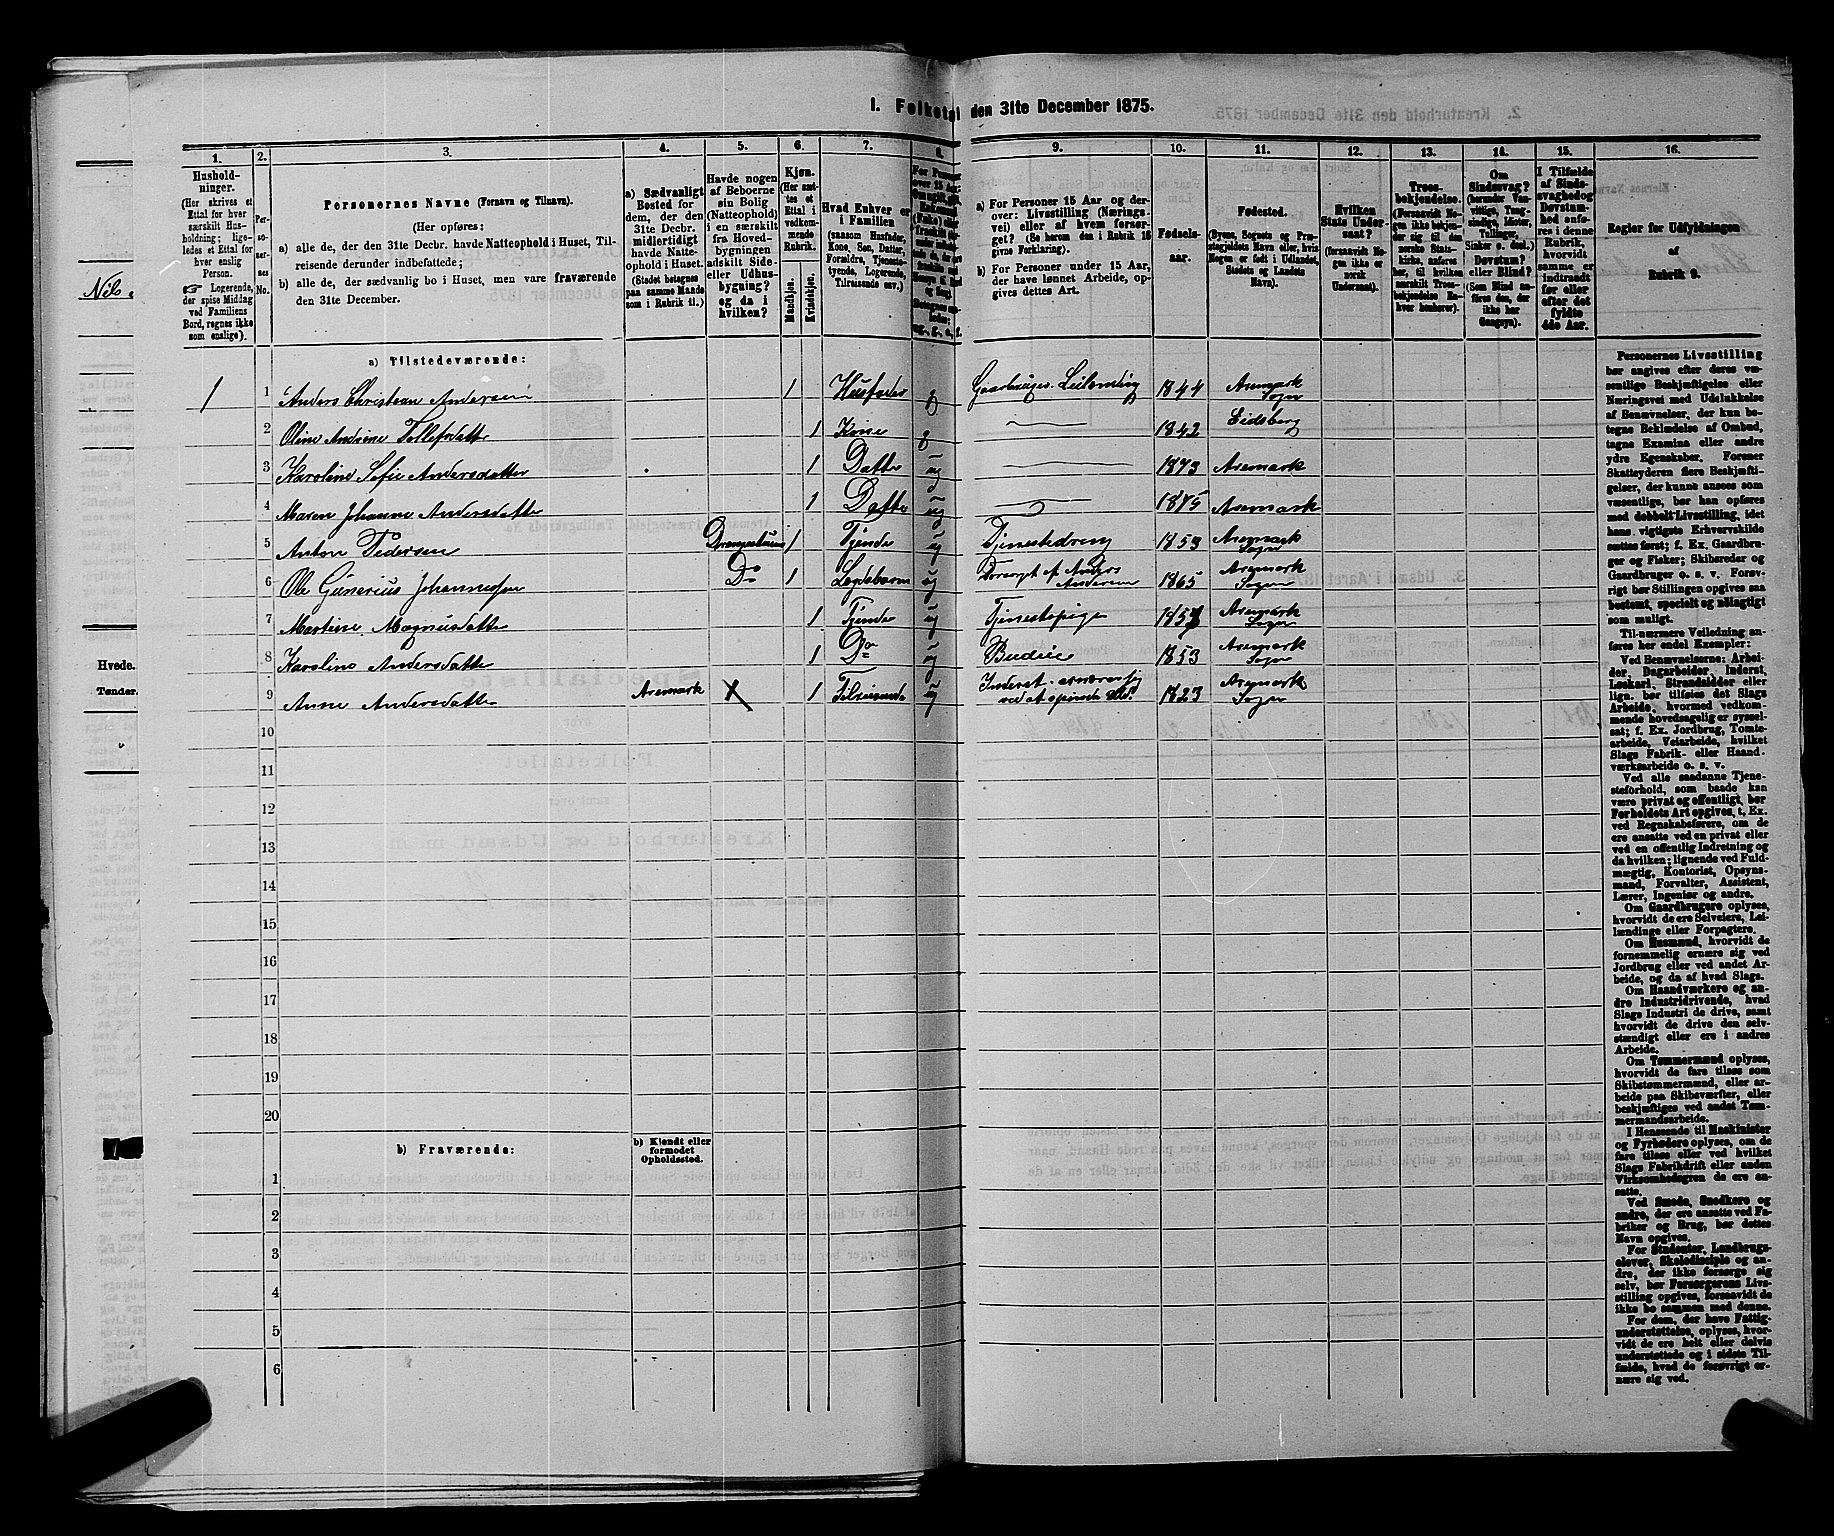 1. Folketal den 31te December 1875.
1. 2. 3. 4. 5. 6. 7. 8. 9. 10. 11. 12. 13. 14. 15. 16.
Hushold-
ninger.
(Her skrives et
Ettal for hver
særskilt Hus-
holdning; lige-
ledes et Ettal for
hver enslig
Person.
☞ Logerende,
der spise Middag
ved Familiens
Bord, regnes ikke
som enslige).
Per-
so-
ner-
nes
No.
Personernes Navne (Fornavn og Tilnavn).
(Her opføres:
a) alle de, der den 31te Decbr. havde Natteophold i Huset, Til-
reisende derunder indbefattede;
b) alle de, der sædvanlig bo i Huset, men vare fraværende
den 31te December.
a) Sædvanligt
Bosted for
dem, der den
31te Decbr.
midlertidigt
havde Natte-
ophold i Huset.
(Stedet betegnes
paa samme Maade
som i Rubrik 11.)
Havde nogen
af Beboerne
sin Bolig
(Natteophold)
i en særskilt
fra Hoved-
bygningen
adskilt Side-
eller Udhus-
bygning?
og da i
hvilken?
Kjøn.
(Her sæt-
tes et
Ettal i
vedkom-
mende
Rubrik.
Mandkjøn.
Kvindekjøn.
Hvad Enhver er
i Familien
(saasom Husfader,
Kone, Søn, Datter,
Forældre, Tjeneste-
tyende, Logerende,
Tilreisende osv.)
a) For Personer 15 Aar og der-
over: Livsstilling (Nærings-
vei) eller af hvem forsør-
get? (Se herom den i Rubrik 16
givne Forklaring).
b) For Personer under 15 Aar,
der have lønnet Arbeide, op-
gives dettes Art.
Fødsels-
aar.
Fødested.
(Byens, Sognets og Præ-
stegjeldets Navn eller, hvis
Nogen er født i Udlandet,
Stedets og Landets
Navn).
Hvilken
Stats Under-
saat?
(forsaavidt No-
gen ikke er
norsk
Undersaat).
Troes-
bekjendelse.
(Forsaavidt No-
gen ikke bekjen-
der sig til den
norske Stats-
kirke, anføres
her, til hvilken
særskilt Troes-
bekjendelse En-
hver henhører).
Om
Sindssvag?
(herunder Van-
vittige, Tung-
sindige, Idioter,
Sinker o. desl.)
Døvstum?
eller Blind?
(Som Blind an-
føres den, der
ikke har
Gangsyn).
I Tilfælde
af Sinds-
svaghed og
Døvstum-
hed anfø-
res i denne
Rubrik,
hvorvidt
samme er
indtraadt
før eller
efter det
fyldte
4de Aar.
Regler for Udfyldningen
af
Rubrik 9.
a) Tilstedeværende:
1 1 Anders Christian Andersen 1 Husfader g Gaardbruger Leilending 1844 Aremark Sogn
2 Oline Andrine Tollefsdatter 1 Kone g 1842 Eidsberg
3 Karoline Sofie Andersdatter 1 Datter ug 1873 Aremark
4 Maren Johanne Andersdatter 1 Datter ug 1875 Aremark
5 Anton Pedersen 1 Tjende ug Tjenestedreng 1859 Aremark Sogn
6 Ole Gunerius Johannessen Do 1 Legdebarn ug Forsørget af Anders Andersen 1865 Aremark Sogn
7 Martine Magnusdatter 1 Tjende ug Tjenestepige Aremark Sogn
8 Karoline Andersdatter 1 Do ug Budeie 1853 Aremark Sogn
9 Anne Andersdatter Aremark 1 Tilreisende ug Inderst ernærer sig ved at spinde Uld 1823 Aremark Sogn
10
11
12
13
14
15
16
17
18
19
20
b) Fraværende:
b) Kjendt eller
formodet
Opholdssted.
1
2
3
4
5
6
Personernes Livsstilling
bør angives efter deres væ-
sentlige Beskjæftigelse eller
Næringsvei med Udelukkelse
af Benævnelser, der kun be-
tegne Beklædelse af Ombud,
tagne Examina eller andre
ydre Egenskaber. Forener
Skatteyderen flere Beskjæfti-
gelser, der kunne ansees som
væsentlige, bør han opføres
med dobbelt Livsstilling, idet
hans vigtigste Erhvervskilde
sættes først; f. Ex. Gaardbru-
ger og Fisker; Skibsreder og
Gaardbruger o. s. v. Forøv-
rigt bør Stillingen opgives saa
bestemt, specielt og nöiagtigt
som muligt.
Til nærmere Veiledning an-
føres her endel Exempler:
Ved Benævnelserne: Arbei-
der, Dagarbeider, Inderst,
Løskarl, Strandsidder eller
lign. bør tilføies det Slags
Arbeide, hvormed vedkom-
mende hovedsagelig er syssel-
sat; f. Ex. Jordbrug, Tomte-
arbeide, Veiarbeide, hvilket
Slags Fabrik- eller Haand-
værksarbeide o. s. v.
Ved alle saadanne Tjene-
steforhold, som baade kan
være privat og offentligt, bør
Forholdets Art opgives, t. Ex.
ved Regnskabsførere, om de
ere ansatte ved en privat eller
ved en offentlig Indretning og
da hvilken; lignende ved Fuld-
mægtig, Kontorist, Opsyns-
mand, Forvalter, Assistent,
Lærer, Ingeniør og andre.
Om Gaardbrugere oplyses,
hvorvidt de ere Selveiere, Lei-
lændinge eller Forpagtere.
Om Husmænd, hvorvidt de
fornemmelig ernære sig ved
Jordbrug eller ved andet Ar-
beide, og da af hvad Slags.
Om Haandværkere og an-
dre Industridrivende, hvad
Slags Industri de drive, samt
hvorvidt de drive den selv-
stændigt eller ere i andres
Arbeide.
Om Tømmermænd oplyses,
hvorvidt de fare tilsøs som
Skibstømmermænd, eller ar-
beide paa Skibsværfter, eller
beskjæftiges ved andet Tøm-
mermandsarbeide.
I Henseende til Maskinister
og Fyrbødere oplyses, om de
fare tilsøs eller ved hvilket
Slags Fabrikdrift eller anden
Virksomhedsgren de ere an-
satte.
Ved Smede, Snedkere og
andre, der ere ansatte ved Fa-
briker og Brug, bør dettes
Navn opgives.
For Studenter, Landbrugs-
elever, Skoledisciple og an-
dre, der ikke forsørge sig
selv, bør Forsørgerens Livs-
stilling opgives, forsaavidt de
ikke bo sammen med denne.
For dem, der have Fattig-
understøttelse, oplyses, hvor-
vidt de ere helt eller delvis
understøttede og i sidste Til-
fælde, hvad de forøvrigt er-
nære sig ved.
Hvede.
Tønder.